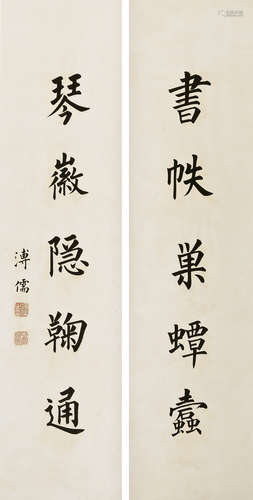 書帙巢蟫蠹
琴徽隐鞠通
溥儒